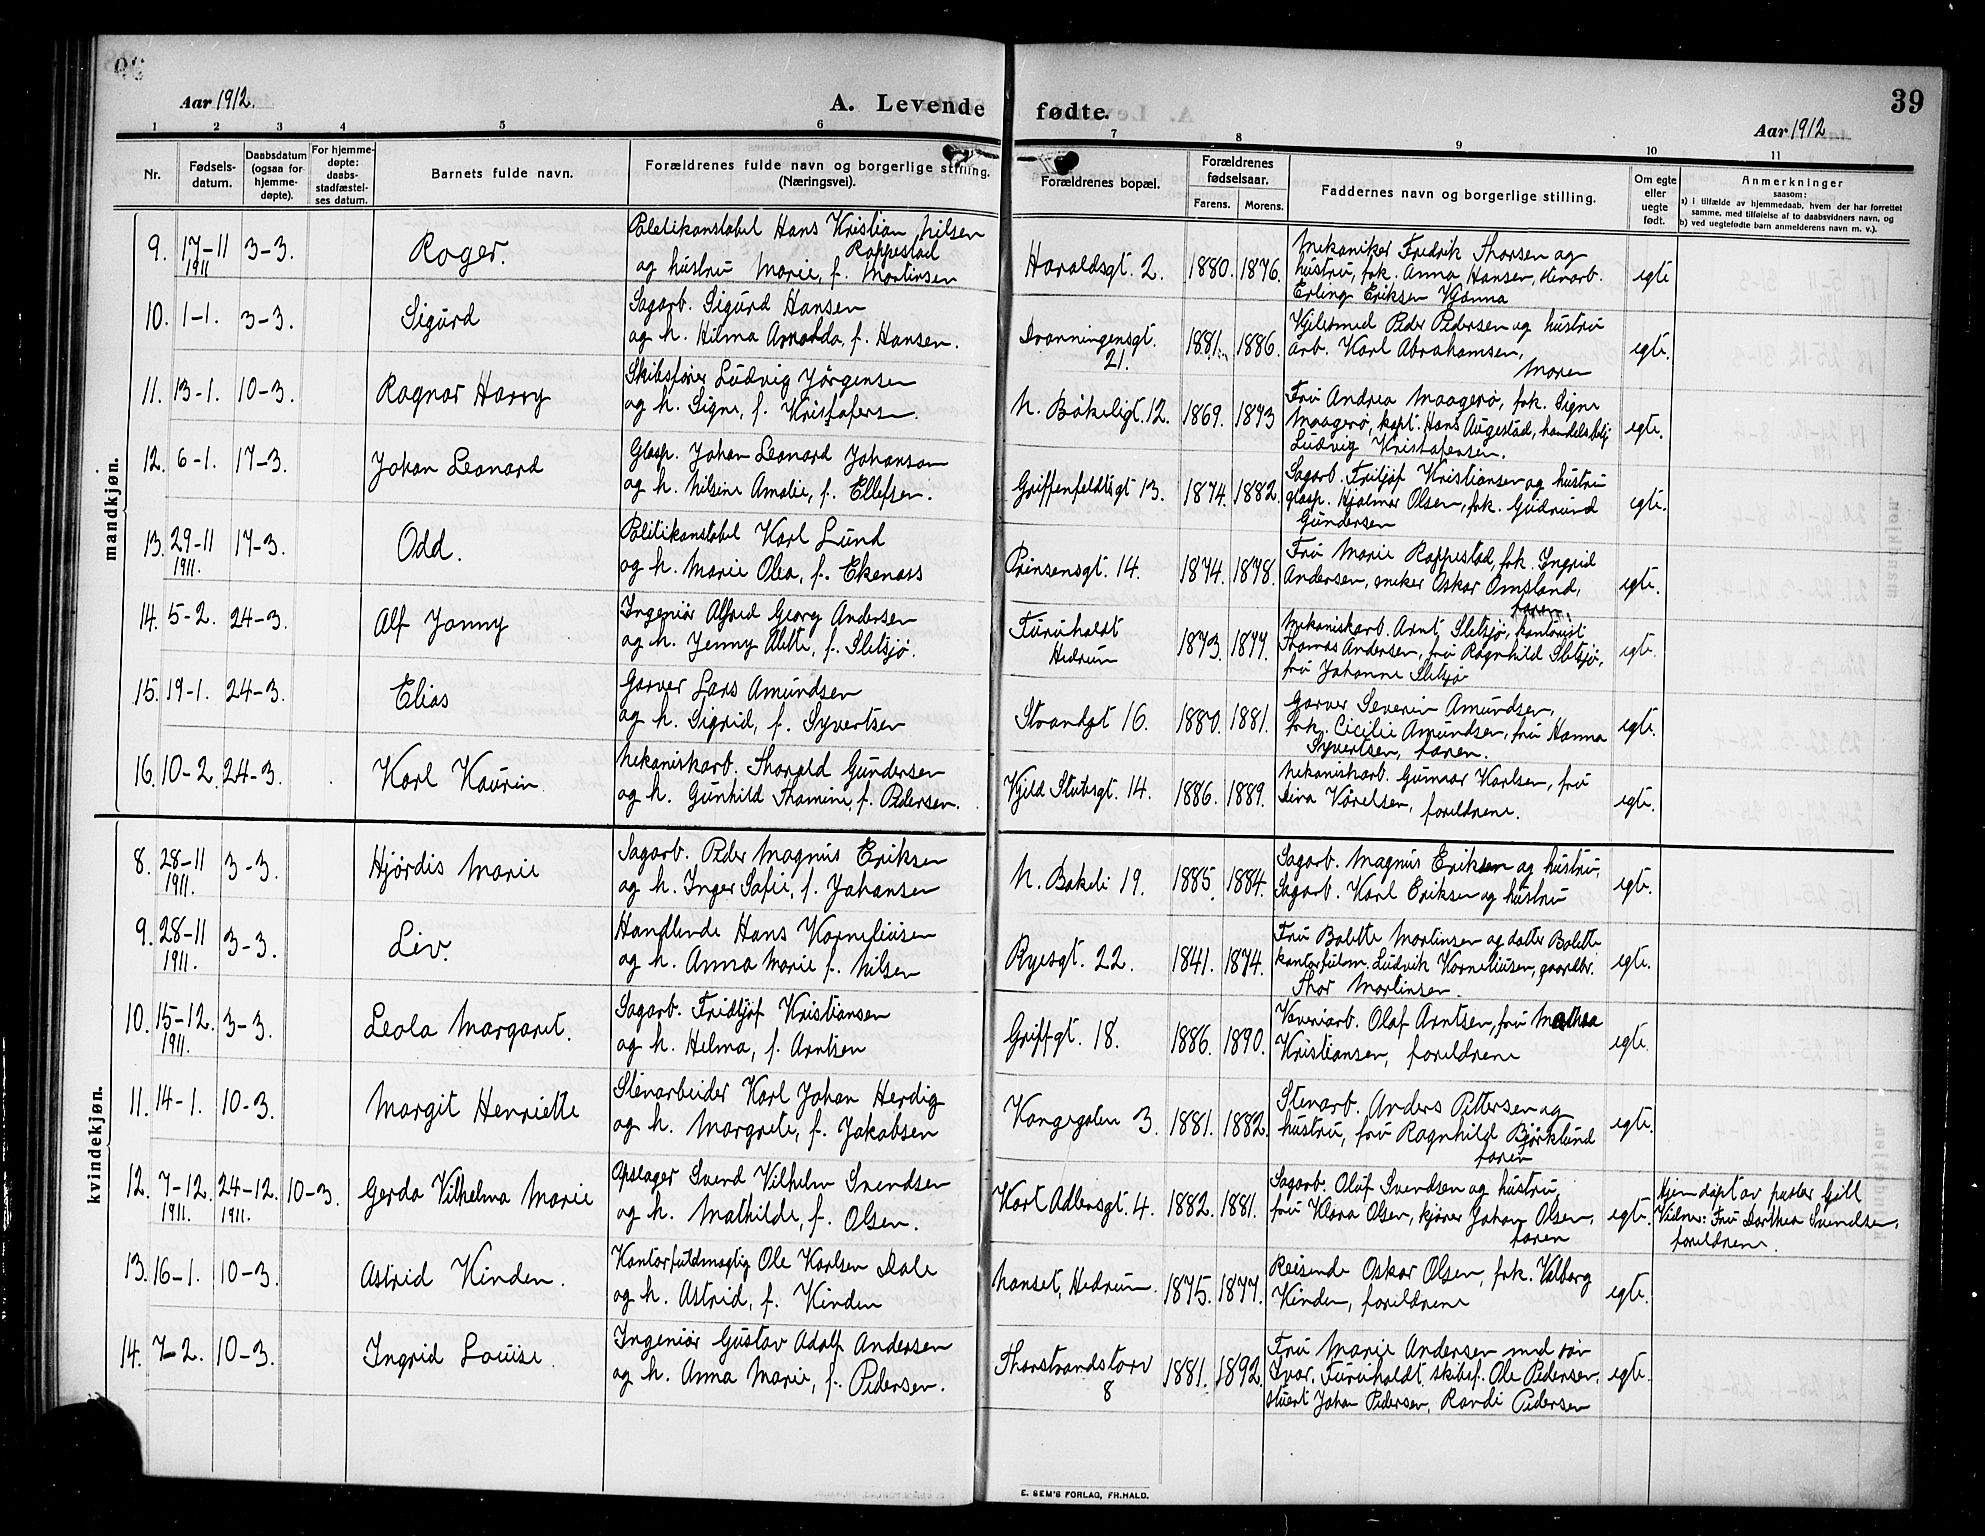 39
Aar 1912.
A. Levende
fødte.
Aar 1912
1 2 3 4 5 6 7 8 9 10 11
Nr.
Fødsels-
datum.
Daabsdatum
(ogsaa for
hjemme-
døpte).
For hjemme-
døpte:
daabs-
stadfæstel-
ses datum.
Barnets fulde navn.
Forældrenes fulde navn og borgerlige stilling.
(Næringsvei).
Forældrenes bopæl.
Forældrenes
fødselsaar.
Farens. Morens.
Faddernes navn og borgerlige stilling.
Om egte
eller
uegte
født.
Anmerkninger
saasom:
a) i tilfælde av hjemmedaab, hvem der har forrettet
samme, med tilføielse af to daabsvidners navn, og
b) ved uegtefødte barn anmelderens navn m. v.).
mandkjøn.
9. 17-11 3-3. Roger. Politikonstabel Hans Kristian Nilsen
1911 Rappestad
og hustru Marie, f. Martinsen
Haraldsgt. 2. 1880. 1876. Mekaniker Fredrik Thorsen og
hustru, frk. Anna Hansen, stenarb. egte
Erling Eriksen Kjønna
10. 1-1. 3-3. Sigurd Sagarb. Sigurd Hansen
og h. Hilma Amanda, f. Hansen.
Dronningensgt. 1881. 1886. Kjelsmed Peder Pedersen og hustru
21. arb. Karl Abrahamsen, egte.
Moren
11. 13-1. 10-3. Ragnar Harry Skibsfører Ludvig Jörgensen
og h. Signe, f. Kristofersen.
N. Bökeligt. 12. 1869. 1873 Fru Andrea Maagerø, frk. Signe
Maagerø, kapt. Hans Augestad, handelsbetj. egte.
Ludvig Kristofersen.
12. 6-1. 17-3. Johan Leonard Glasp. Johan Leonard Johansen
og h. Nilsine Amalie, f. Ellefsen.
Griffenfeldtsgt 13. 1874. 1882 Sagarb. Fritjof Kristiansen og hustru
glasp. Hjalmar Olsen, frk. Gudrund egte.
Gundersen
13. 29-11 17-3. Odd. Politikonstabel Karl Lund
1911. og h. Marie Olea, f. Ekenæss
Prinsensgt. 14. 1874. 1878. Fru Marie Rappestad, frk. Ingrid
Andersen, snekker Oskar Omsland, egte.
faren.
14. 5-2. 24-3. Alf Jonny Ingeniör Alfred Georg Andersen
og h. Jenny Alette, f. Sletsjø.
Furuholdt 1873. 1877. Mekaniskarb. Arnt Sletsjø, kontorist
Hedrum Thomas Andersen, fru Ragnhild Sletsjø, egte.
fru Johanne Sletsjø
15. 19-1. 24-3. Elias Garver Lars Amundsen
og h. Sigrid, f. Syvertsen
Strandgt 16. 1880. 1881. Garver Severin Amundsen,
frk. Cicilie Amundsen, fru Hanna egte.
Syvertsen, faren.
16. 10-2. 24-3. Karl Kaurin Mekaniskarb. Thorald Gundersen
og h. Gunhild Thamine, f. Pedersen.
Kjeld Stubsgt. 14. 1886. 1889. Mekaniskarb. Gunnar Karlsen, fru
Dina Karelsen, foreldrene. egte.
kvindekjøn.
8. 28-11 3-3. Hjørdis Marie Sagarb. Peder Magnus Eriksen
1911. og h. Inger Sofie, f. Johansen
N. Bakeli 19. 1885. 1884. Sagarb. Magnus Eriksen og hustru,
Sagarb. Karl Eriksen og hustru egte.
9. 28-11 3-3. Liv. Handlende Hans Korneliusen
1911. og h. Anna Marie f. Nilsen
Ryesgt. 22. 1841. 1874. Fru Bolette Martinsen og datter Bolette
kontorfuldm. Ludvik Korneliusen, gaardbr. egte.
Thor Martinsen.
10. 15-12. 3-3. Leola Margaret. Sagarb. Fridtjof Kristiansen
1911. og h. Helma, f. Arntsen
Griff.gt. 18. 1886. 1890. Væveriarb. Olaf Arntsen, fru Mathea
Kristiansen, foreldrene egte.
11. 14-1. 10-3. Margit Henriette Stenarbeider Karl Johan Herdig
og h. Margrete, f. Jakobsen
Kongegaten 3. 1881. 1882. Stenarb. Anders Pettersen og
hustru, fru Ragnhild Björklund egte.
faren
12. 7-12. 24-12. 10-3. Gerda Vilhelma Marie Opslager Svend Vilhelm Svendsen
1911. 1911. og h. Mathilde, f. Olsen.
Kort Adlersgt. 4. 1882. 1881. Sagarb. Oluf Svendsen og hustru,
fru Klara Olsen, kjører Johan Olsen, egte.
faren
Hjemdøpt av pastor Gill
Vidner: Fru Dorthea Svendsen,
foreldrene.
13. 16-1. 10-3. Astrid Kinden. Kontorfuldmægtig Ole Karlsen Dale
og h. Astrid, f. Kinden
Nanset, Hedrum. 1875. 1877. Reisende Oskar Olsen, frk. Valborg
Kinden, foreldrene egte.
14. 7-2. 10-3. Ingrid Louise. Ingeniör Gustav Adolf Andersen
og h. Anna Marie, f. Pedersen.
Thorstrandstorv 1881. 1892. Fru Marie Andersen med søn
8 Ivar, Furuholdt, skibsf. Ole Pedersen, egte.
stuert Johan Pedersen, Randi Pedersen
E. SEM'S FORLAG, FR.HALD.